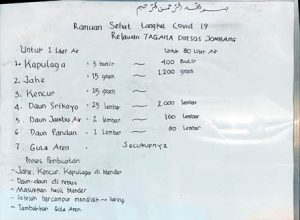 بسم الله الرحمن الرحيم
Ramuan Sehat Tangkal Covid 19
Relawan TAGANA DINSOS JOMBANG
Untuk 1 Liter Air    Untuk 80 Liter Air
1. Kapulaga : 5 butir ~ 400 Butir
2. Jahe : 15 gram ~ 1200 gram
3. Kencur : 15 gram ~
4. Daun Srikoyo : 25 lembar ~ 2.000 lembar
5. Daun Jambu Air : 2 lembar ~ 160 lembar
6. Daun Pandan : 1 lembar ~ 80 lembar
7. Gula Aren : Secukupnya
Proses Pembuatan
- Jahe, Kencur, Kapulaga di blender
- Daun-daun di rebus
- Masukkan hasil blender
- Setelah bercampur mendidih → saring
- Tambahkan Gula Aren